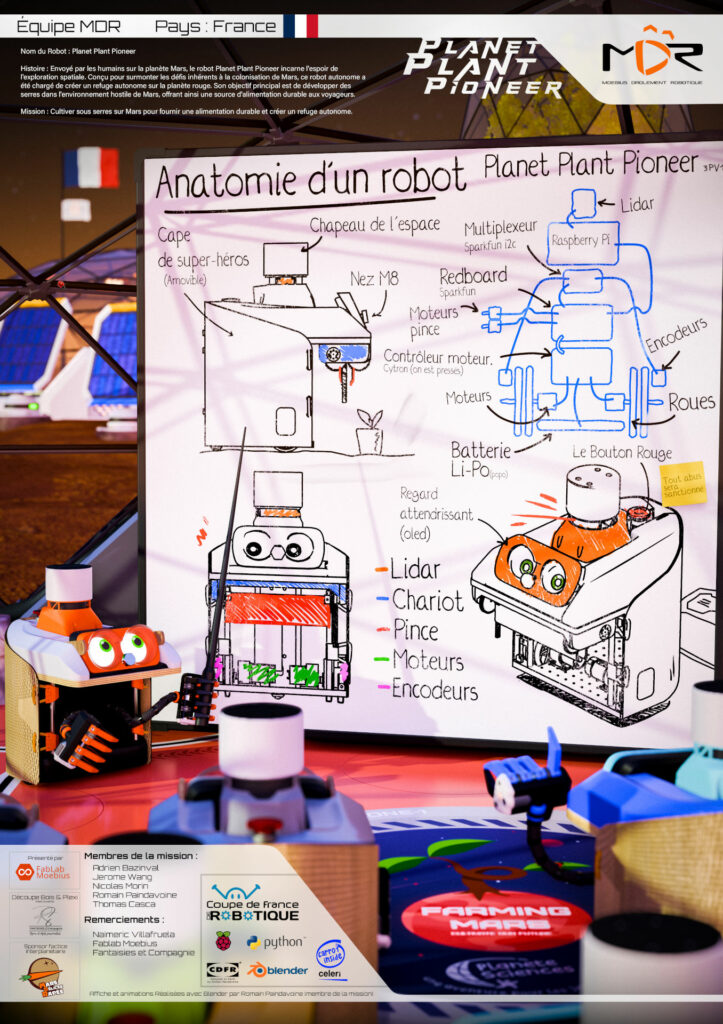 Équipe MDR
Pays : France
Nom du Robot : Planet Plant Pioneer
Histoire : Envoyé par les humains sur la planète Mars, le robot Planet Plant Pioneer incarne l'espoir de
l'exploration spatiale. Conçu pour surmonter les défis inhérents à la colonisation de Mars, ce robot autonome a
été chargé de créer un refuge autonome sur la planète rouge. Son objectif principal est de développer des
serres dans l'environnement hostile de Mars, offrant ainsi une source d'alimentation durable aux voyageurs.
Mission : Cultiver sous serres sur Mars pour fournir une alimentation durable et créer un refuge autonome.
PLANET
PLANT
PIONEER
MDR
MOEBIUS DROLEMENT ROBOTIQUE
Anatomie d'un robot
Planet Plant Pioneer
Cape
de super-héros
(Amovible)
Chapeau de l'espace
Nez M8
Lidar
Multiplexeur
Sparkfun i2c
Raspberry Pi
Redboard
Sparkfun
Moteurs
pince
Contrôleur moteur.
Cytron (on est pressés)
Encodeurs
Moteurs
Roues
Batterie
Li-Po(popo)
Le Bouton Rouge
Tout abus
sera
sanctionné
Regard
attendrissant
(oled)
Lidar
Chariot
Pince
Moteurs
Encodeurs
FARMING
MARS
Planète
Sciences
Présenté par
FabLab
Moebius
Découpe Bois & Plexi
Sponsor factice
interplanétaire
Membres de la mission :
Adrien Bazinval
Jerome Wang
Nicolas Morin
Romain Paindavoine
Thomas Casca
Remerciements :
Naimeric Villafruela
Fablab Moebius
Fantaisies et Compagnie
Coupe de france
DE ROBOTIQUE
Raspberry Pi
python
CDFR
blender
carrot
inside
celeri
Affiche et animations Réalisées avec Blender par Romain Paindavoine (membre de la mission)